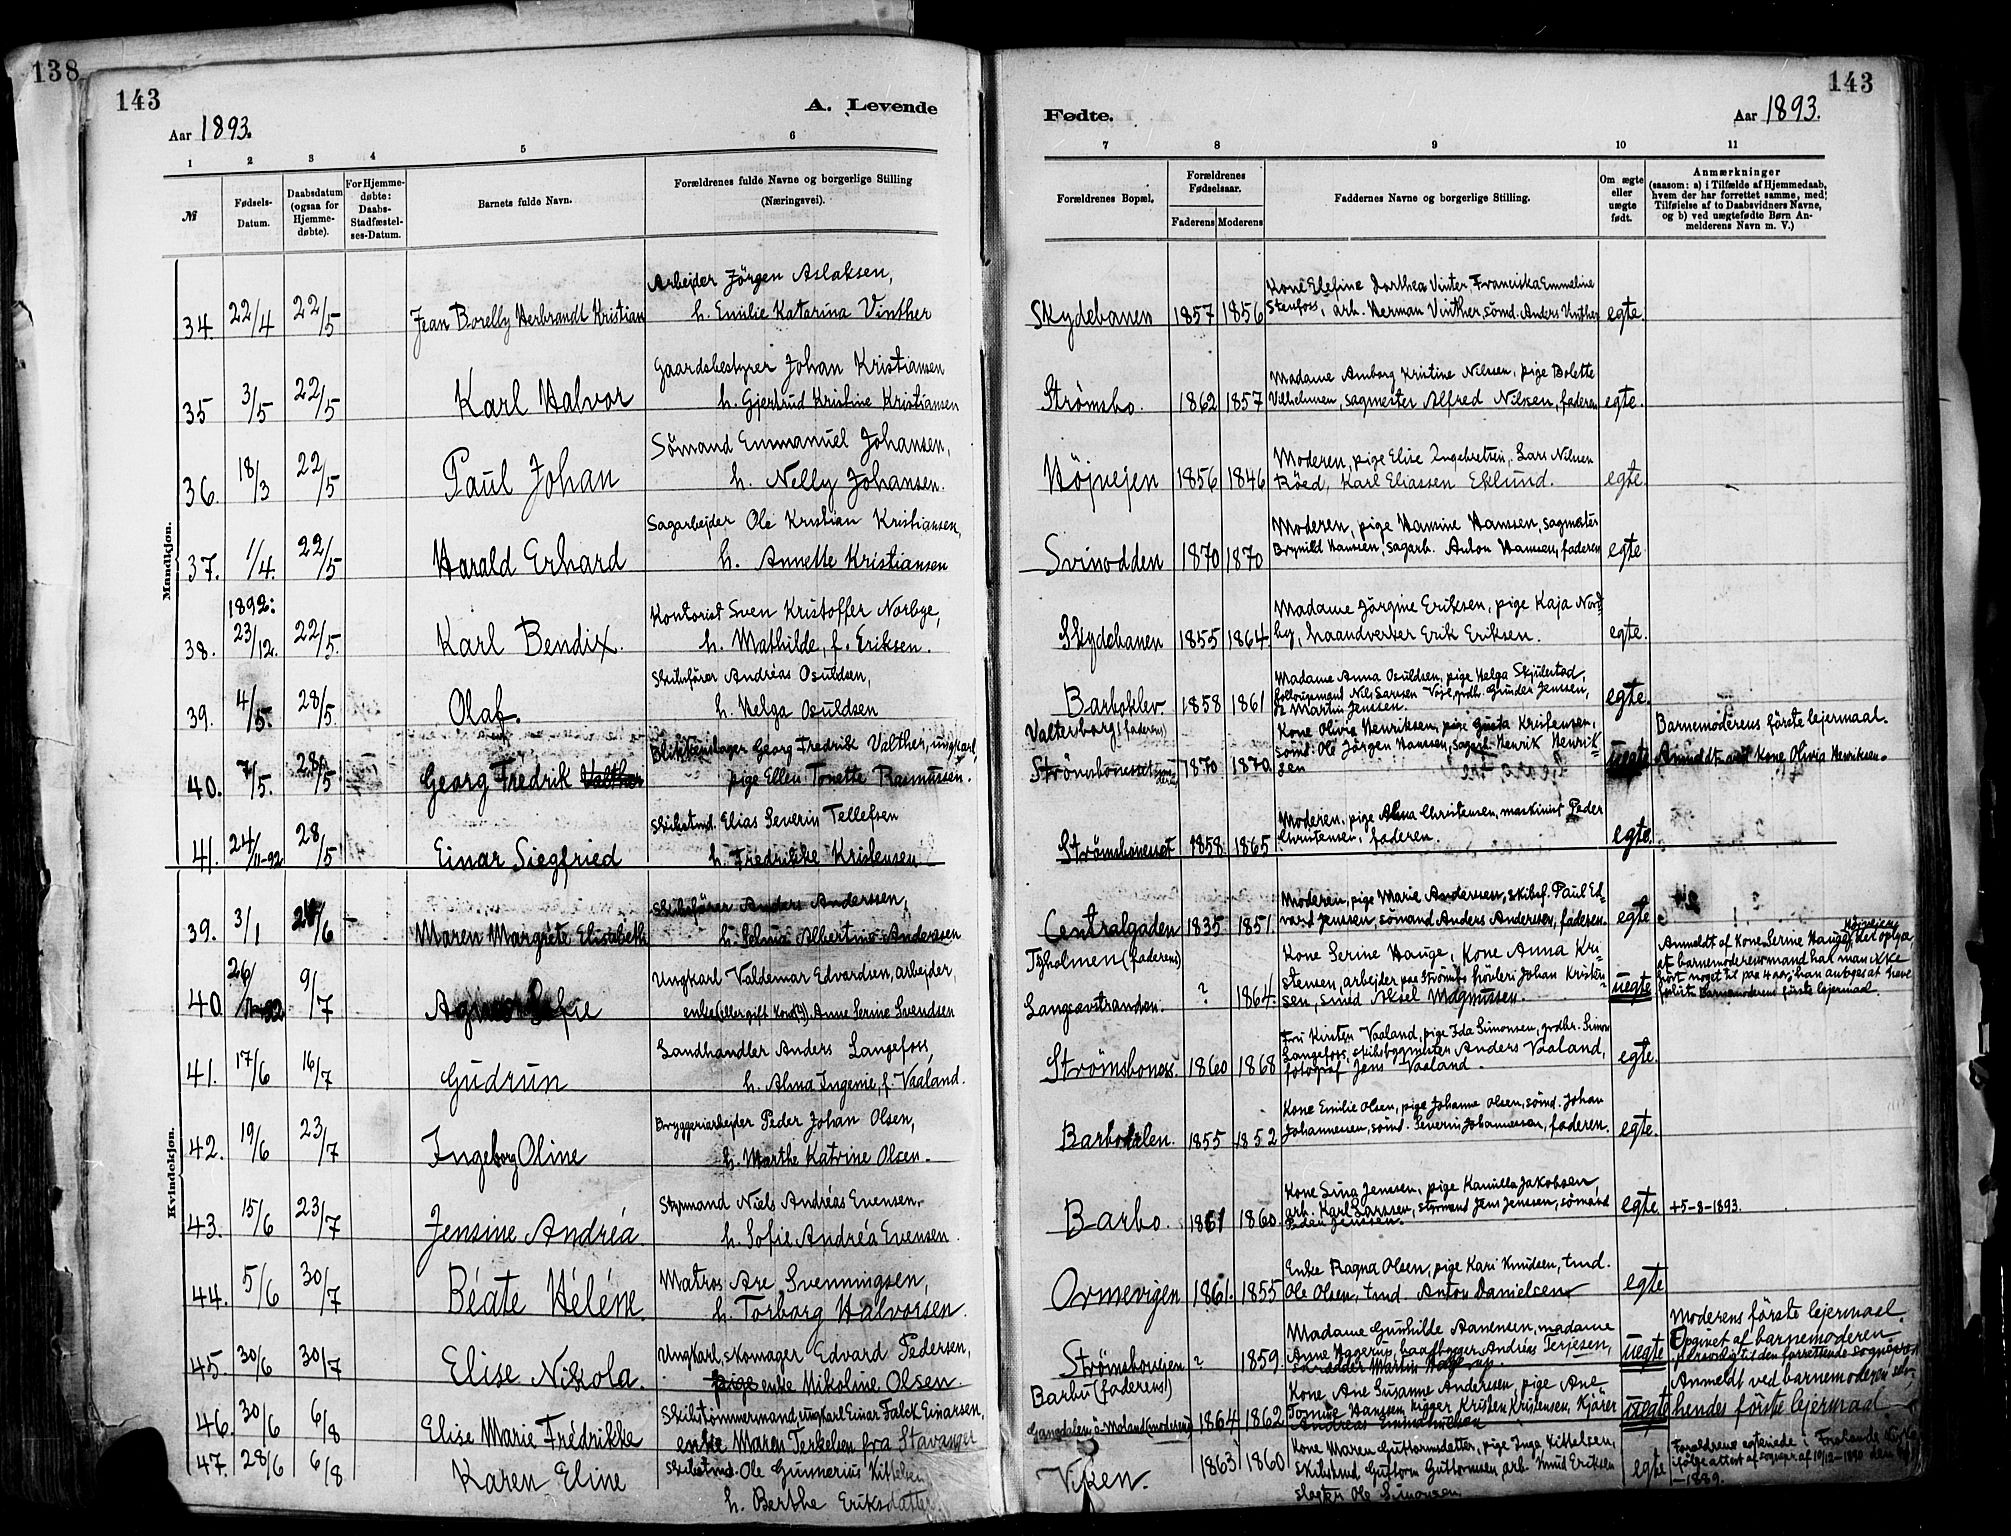 138
143
A. Levende
Aar 1893.
1 2 3 4 5 6
№
Fødsels-Datum.
Daabsdatum (ogsaa for Hjemme-døbte).
For Hjemme-døbte: Daabs-Stadfæstel-ses-Datum.
Barnets fulde Navn.
Forældrenes fulde Navne og borgerlige Stilling
(Næringsvei).
Mandkjøn.
Arbejder Jörgen Aslaksen,
34. 22/4 22/5 Jean Borelly Herbrandt Kristian h. Emilie Katarina Vinther
Gaardsbestyrer Johan Kristiansen
35 3/5 22/5 Karl Halvor h. Gjertrud Kristine Kristiansen
Sömand Emmanuel Johansen,
36. 18/3 22/5 Paul Johan h. Nelly Johansen.
Sagarbejder Ole Kristian Kristiansen,
37. 1/4. 22/5 Harald Erhard h. Annette Kristiansen
1892: Kontorist Sven Kristoffer Norbye,
38. 23/12. 22/5. Karl Bendix. h. Mathilde, f. Eriksen.
Skibsfører Andréas Osuldsen,
39. 4/5. 28/5. Olaf. h. Helga Osuldsen
Blikkenslager Georg Fredrik Valther, ungkarl,
40. 7/5. 28/5. Georg Fredrik Valther pige Ellen Tonette Rasmussen.
Skibstmd. Elias Severin Tellefsen
41. 24/11-92 28/5 Einar Siegfried h. Fredrikke Kristensen
Kvindekjøn.
Skibsfører Anders Anderssen,
39. 3/1 /6 Maren Margrete Elisabeth h. Selma Albertine Anderssen
Ungkarl Valdemar Edvardsen, arbejder,
40. 26/11-92 9/7 Sofie enke Anne Serine Svendsen
Landhandler Anders Langefoss,
41. 17/6 16/7 Gudrun h. Alma Ingenie, f. Vaaland.
Bryggeriarbejder Peder Johan Olsen,
42. 19/6 23/7 Ingeborg Oline h. Marthe Katrine Olsen.
Styrmand Niels Andréas Evensen,
43. 15/6 23/7 Jensine Andréa h. Sofie Andréa Evensen.
Matros Are Svenningsen,
44. 5/6 30/7 Béate Héléne. h. Torborg Halvorsen.
Ungkarl, skomager Edvard Pedersen,
45. 30/6 30/7 Elise Nikola. pige enke Nikoline Olsen.
Skibstömmermand, ungkarl Einar Falck Einarsen,
46. 30/6 6/8 Elise Marie Frédrikke enke Maren Terkelsen fra Stavanger
47. 28/6 6/8 Karen Eline Skibstmd. Ole Gunnerius Kittelsen
h. Berthe Eriksdatter
143
Fødte.
Aar 1893.
7 8 9 10 11
Forældrenes Bopæl.
Forældrenes Fødselsaar.
Faderens Moderens
Faddernes Navne og borgerlige Stilling.
Om ægte eller uægte født.
Anmærkninger
(saasom: a) i Tilfælde af Hjemmedaab,
hvem der har forrettet samme, med
Tilføielse af to Daabsvidners Navne,
og b) ved uægtefødte Børn An-
melderens Navn m. V.)
Kone Elefine Dorthea Vinter, Franciska Emmeline
Skydebanen 1857 1856 Stenfoss, arb. Herman Vinther, sömd. Anders Vinther egte.
Madame Amborg Kristine Nilsen, pige Bolette
Strömsbo. 1862 1857 Vilhelmsen, sagmester Alfred Nilsen, faderen egte.
Moderen, pige Elise Ingebretsen, Lars Nilsen
Höjvejen 1856 1846 Röed, Karl Eliassen Eklund. egte
Moderen, pige Hansine Hanssen, sagmester
Svinodden 1870 1870 Brynild Hanssen, sagarb. Anton Hanssen, faderen egte.
Madame Jörgine Eriksen, pige Kaja Nord-
Skydebanen 1855 1864. by, haandverker Erik Eriksen. egte.
Madame Anna Osuldsen, pige Helga Skjulestad,
Barboklev 1858 1861 Nils Larssen Voje, grdb. Gunder Jenssen, egte.
Martin Jenssen.
Valterborg (faderen) Kone Olivia Henriksen, pige Gusta Kristensen, Barnemoderens förste lejermaal.
sömd. Ole Jörgen Hanssen, sagarb. Henrik Henrik-
Strömsbonesset 1870 1870. sen uegte Anmeldt ved Kone Olivia Henriksen.
Moderen, pige Anna Christensen, maskinist Peder
Strömsbonesset 1858 1865 Christensen, faderen. egte.
Moderen, pige Marie Anderssen, skibsf. Paul Ed-
Centralgaden 1835 1851. vard Jenssen, sömand Anders Anderssen, faderen. egte
Tyholmen (faderens) Kone Serine Hauge, Kone Anna Kri- Anmeldt af Kone Serine Hauge, Höjvejen
stensen, arbejder paa Strömsbo Johan Kristen- at barnemoderens mand har man ikke
Langsævstranden. ? 1864. sen, smed Aksel Magnussen. uegte hört noget til paa 4 aar; han antages at være
Barnemoderens förste lejermaal.
Fru Kirsten Vaaland, pige Ida Simonsen, grdbr. Simon
Strömsbones. 1860 1868 Langefoss, skibsbygmester Anders Vaaland, egte.
fotograf Jens Vaaland.
Kone Emilie Olsen, pige Johanne Olsen, sömd. Johan
Barbodalen. 1855 1852 Johannessen, sömd. Severin Johannessen, faderen. egte.
Kone Lina Jenssen, pige Kamilla Jakobsen
Barbo. 1861 1860. arb. Karl Larssen, styrmand Jens Jenssen, sömand egte +5-8-1893.
Jenssen.
Enke Ragna Olsen, pige Kari Knudsen, tmd.
Ormevigen 1861. 1855 Ole Olsen, tmd. Anton Danielsen egte
Madame Gunhilde Aanensen, madame Moderens förste lejermaal.
Strömsbovejen ? 1859. Anne Aggerup, baadbygger Andréas Terjesen, uegte Opgivet af barnemoderen
skrædder Martin Aggerup personlig til den forrettende sogneprest
Barbu (faderens) Kone Ane Susanne Anderssen, pige Ane Anmeldt ved barnemoderen selv,
ö-Moland (moderen) 1864 1862 Tomine Hanssen, rigger Kristen Kristensen, Kjärer uegte hendes förste lejermaal
Andreas
Kone Maren Guttormsdatter, pige Inga Kittelsen, Forældrene egteviede i
Viken. 1863 1860 skibstmd. Guttorm Guttormsen, arb. Knud Eriksen egte ifölge attest af sognepr. af 10/12-1890 den
slagter Ole Simonsen. -1889.